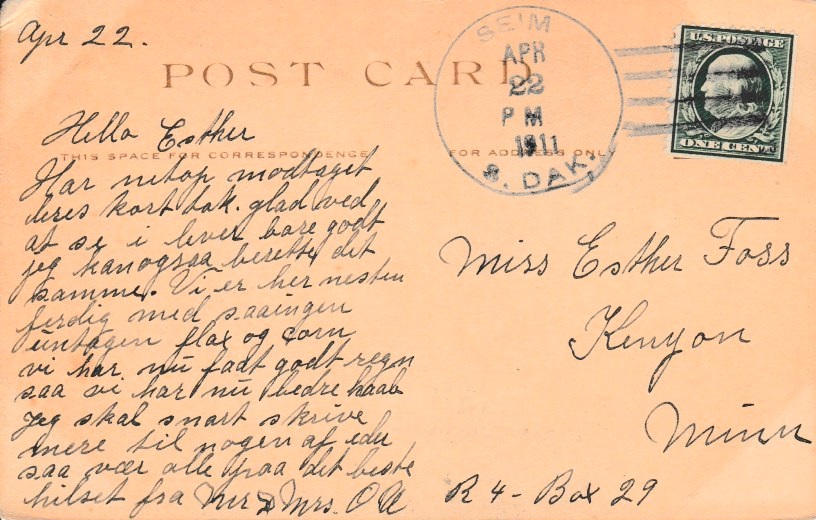 Apr 22.
POST CARD
SEIM
APR
22
PM
1911
S. DAK.
U.S. POSTAGE
ONE CENT
THIS SPACE FOR CORRESPONDENCE
FOR ADDRESS ONLY
Hello Esther
Har netop modtaget
deres kort tak. glad ved
at se i lever bare godt
jeg kan ogsaa berette det
samme. Vi er her nesten
ferdig med saaingen
untagen flax og corn
vi har nu faat godt regn
saa vi har nu bedre haab
Jeg skal snart skrive
mere til nogen af eder
saa vær alle paa det beste
hilset fra Mr & Mrs. O
Miss Esther Foss
Kenyon
Minn
R 4 - Box 29